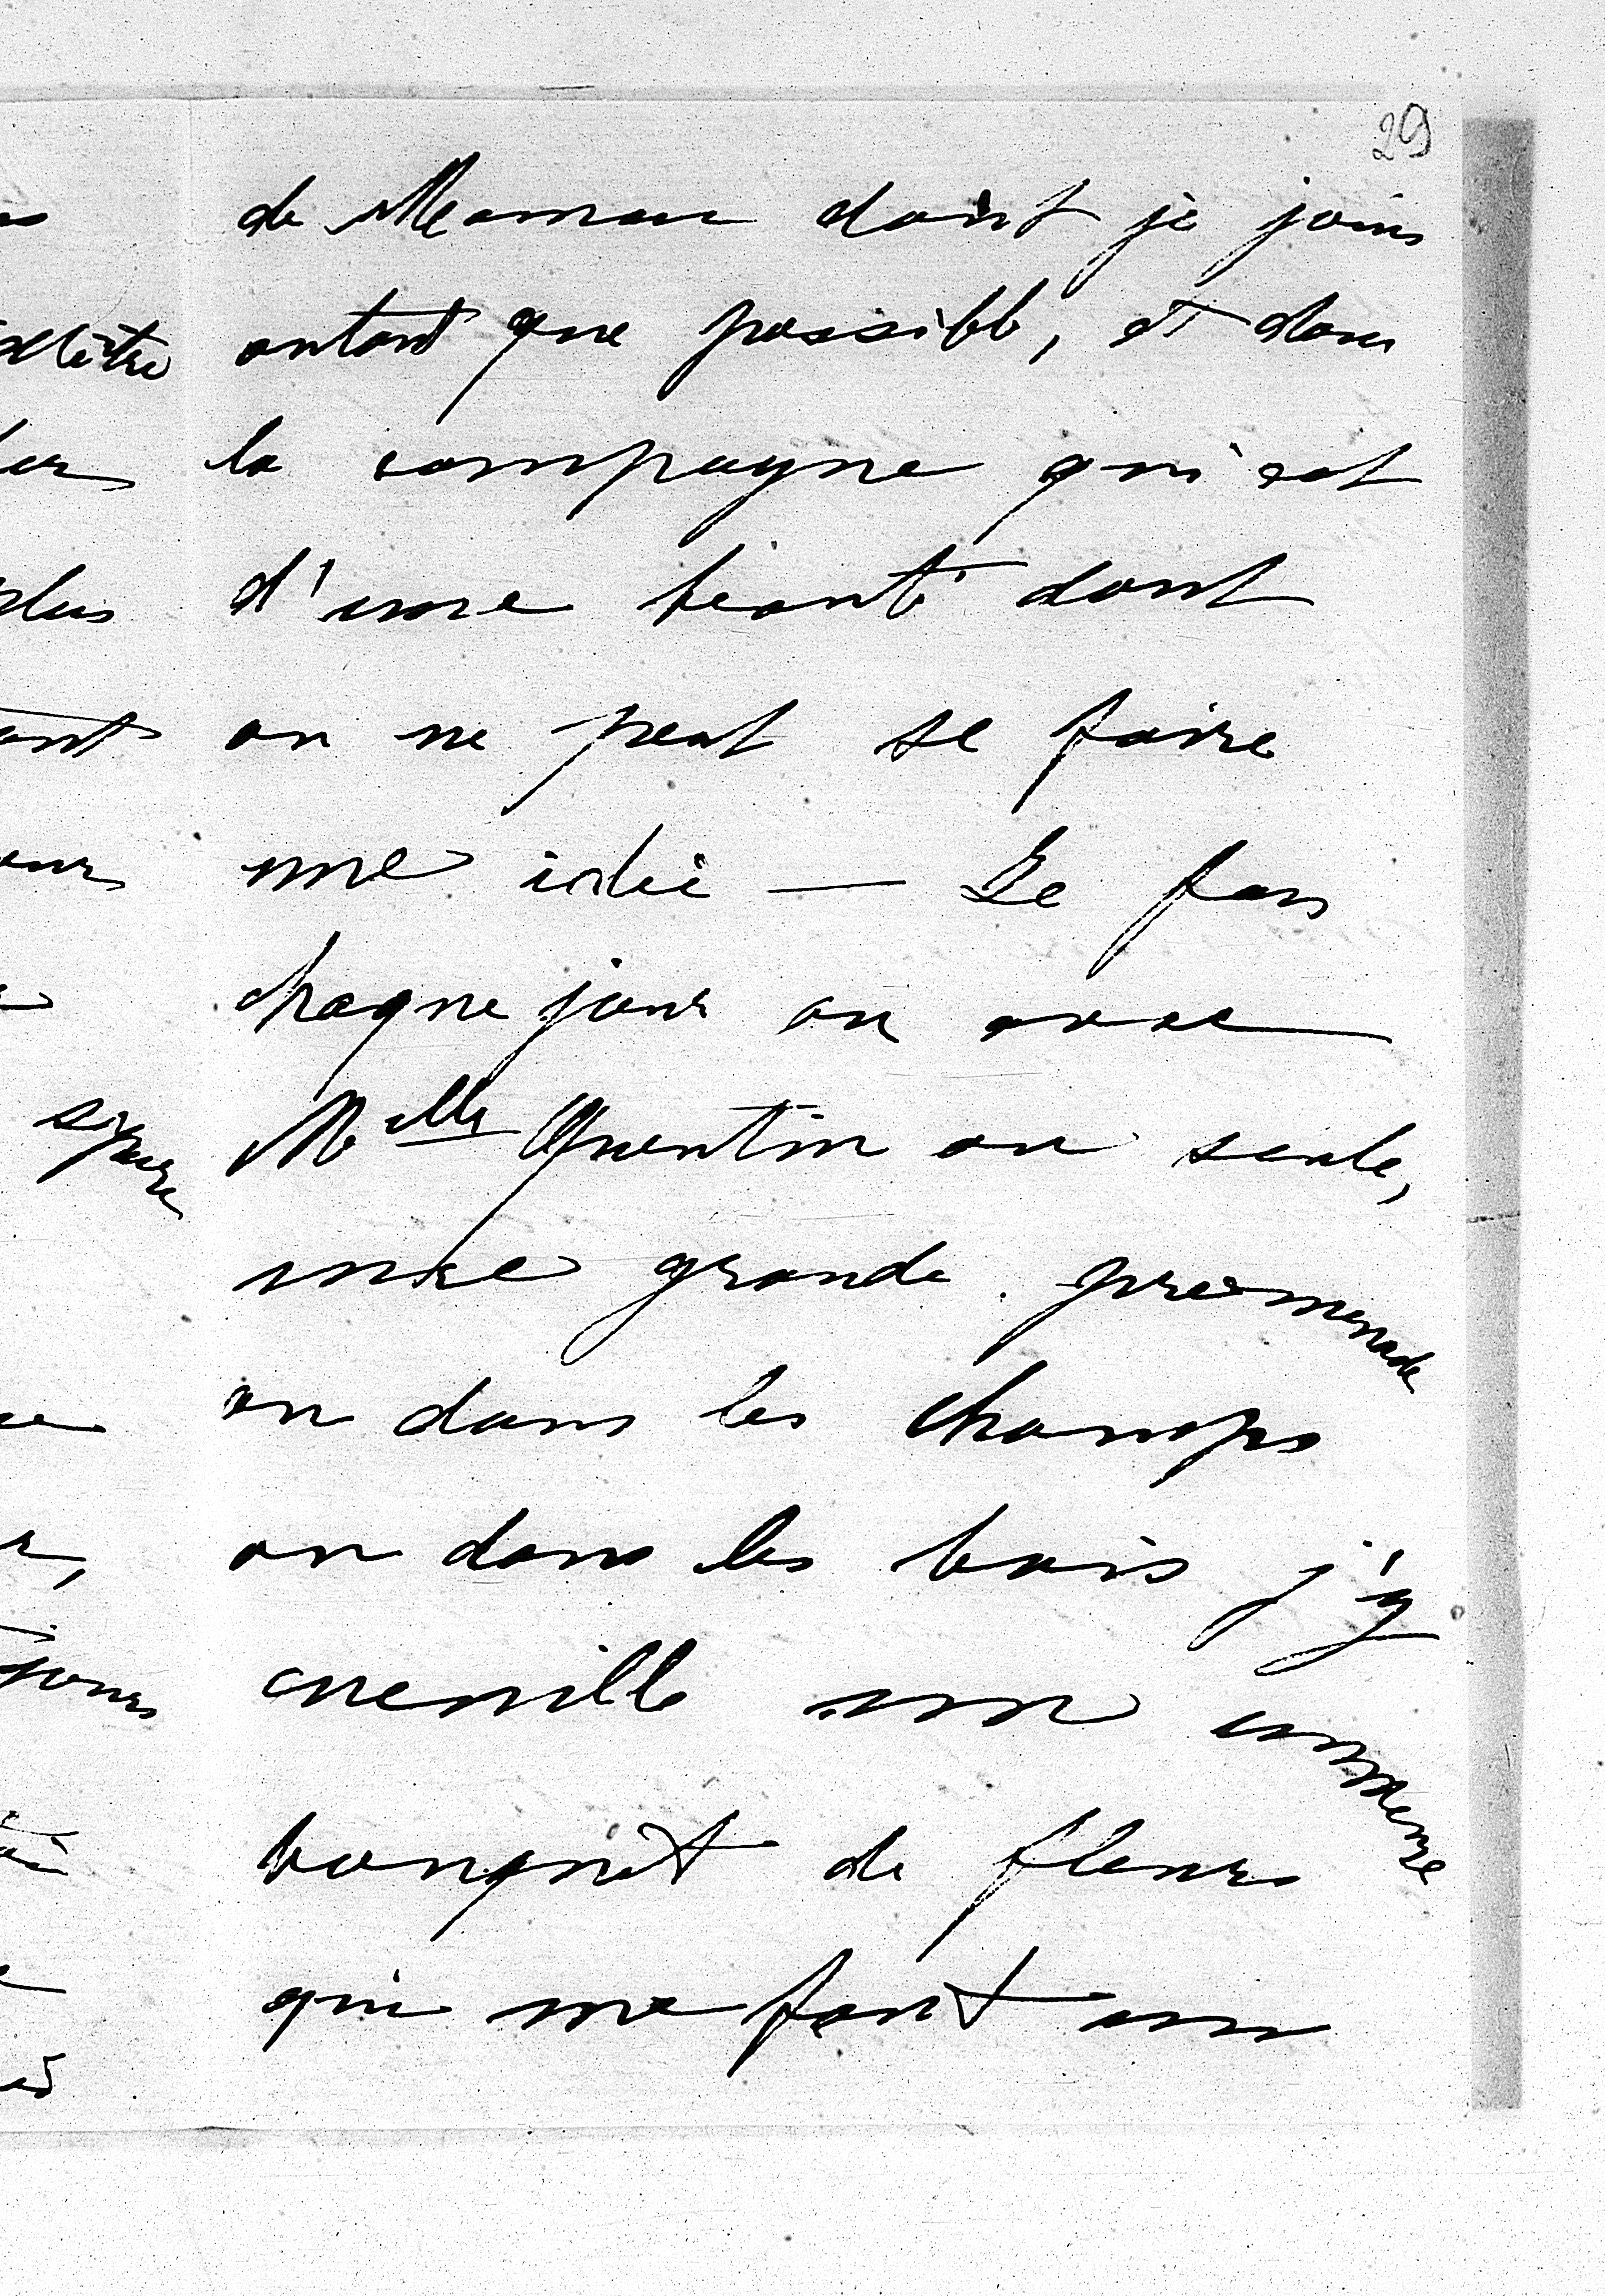 29
de Maman dont je jouis
autant que possible, et dans
la campagne qui est
d'une beauté dont
on ne peut se faire
une idée — Je fais
chaque jour ou avec
Melle Quentin ou seule,
une grande promenade
ou dans les champs
ou dans les bois j'y
cueuille un immense
bouquet de fleurs
qui me font un